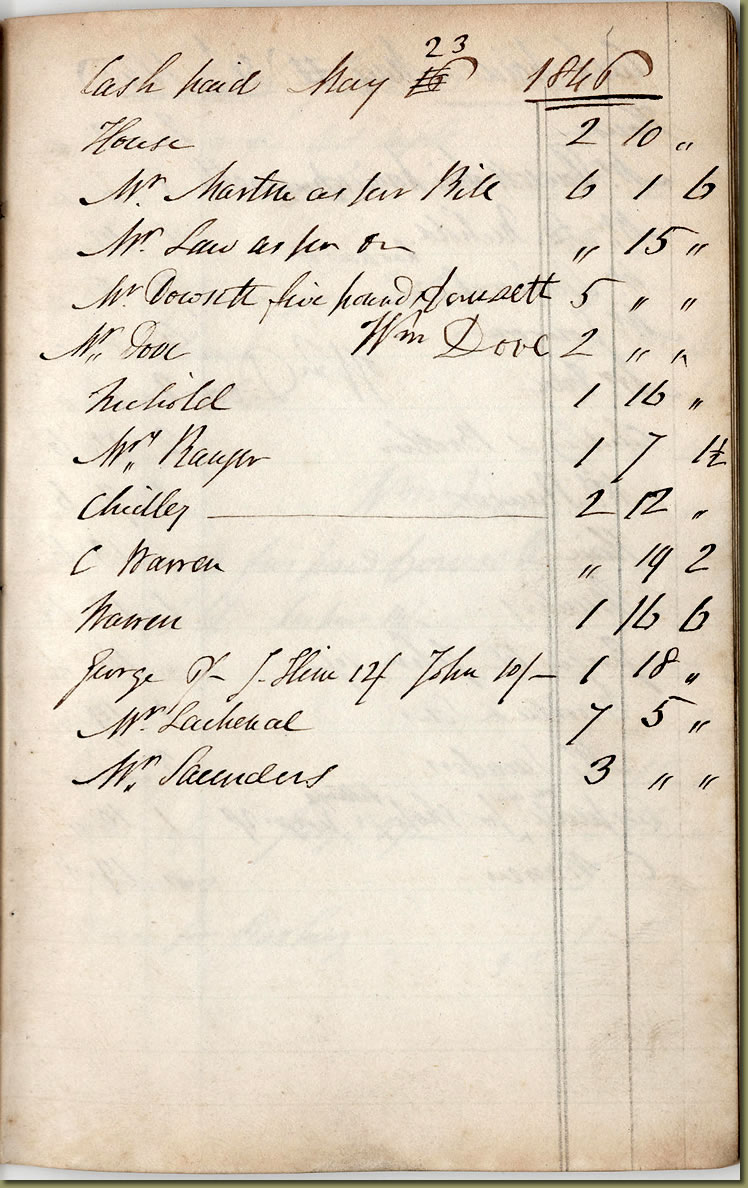 Cash paid May 23 1846
House 2 10 "
Mr. Martin as per Bill 6 1 6
Mr. Law as per 〃 15 "
Mr. Dowsett five pound Dowsett 5 " "
Mr. Dove Wm Dove 2 " "
1 16 "
Mr. Ranger 1 7 1½
Chidley 2 12 "
C Warren " 19 2
Warren 1 16 6
George John 10/- 1 18 "
Mr. Lachenal 7 5 "
Mr. Saunders 3 " "